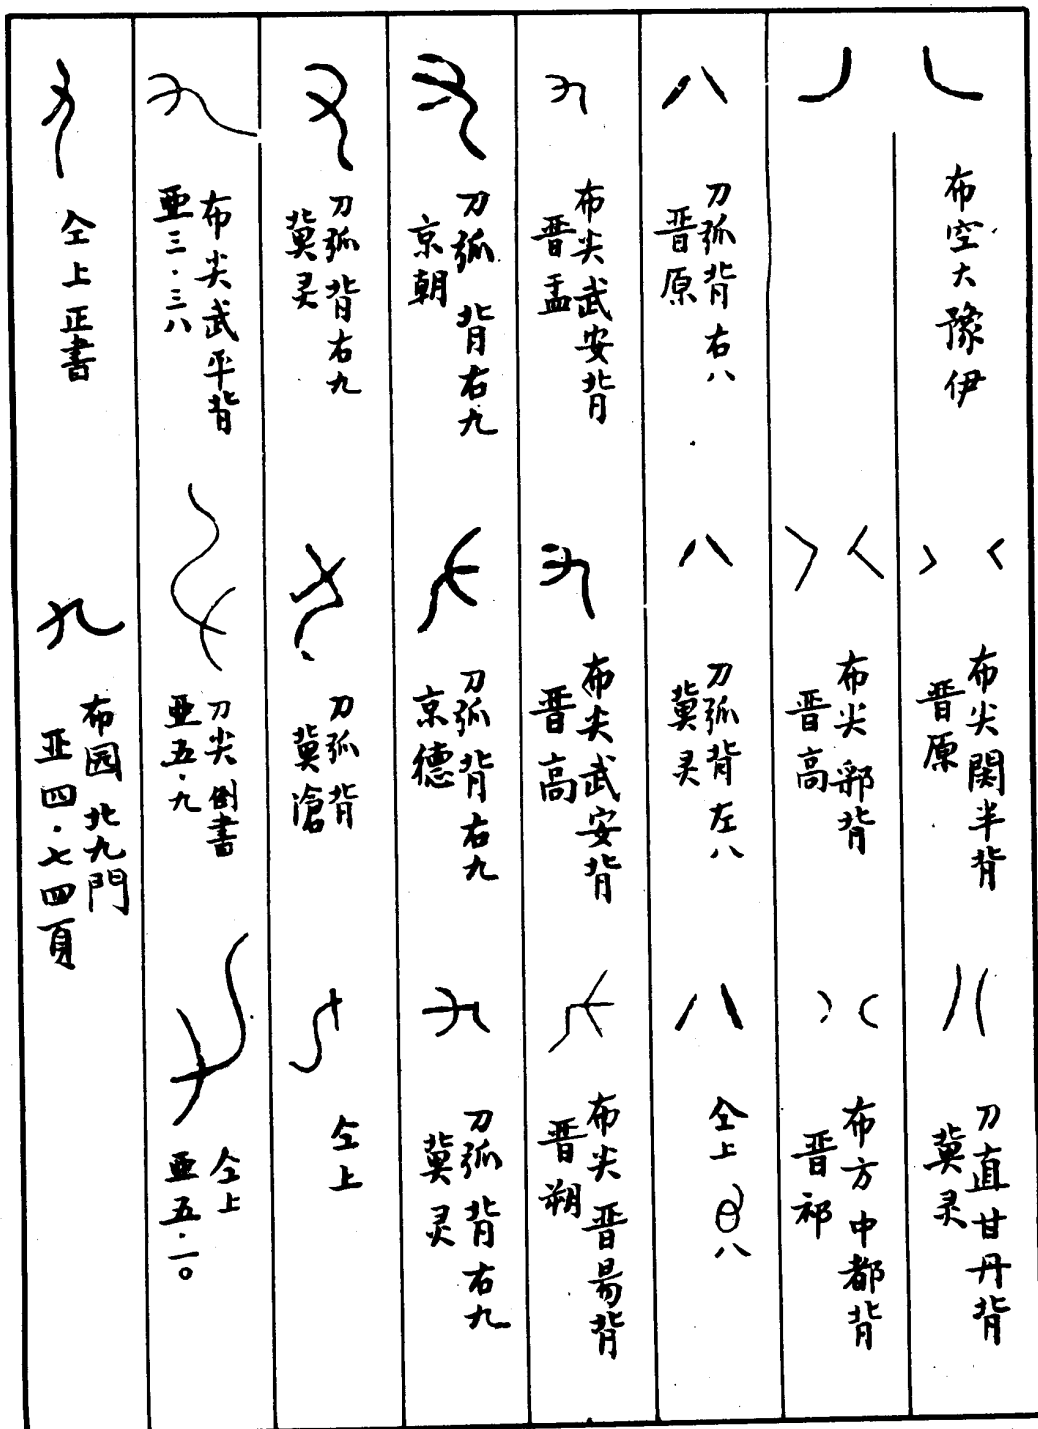 布空大豫伊
布尖関半背
晋原
刀直甘丹背
冀灵
布尖邪背
晋高
布方中都背
晋祁
刀弧背右八
晋原
刀弧背左八
冀灵
仝上
八
布尖武安背
晋盂
布尖武安背
晋高
布尖晋昜背
晋朔
刀弧背右九
京朝
刀弧背右九
京德
刀弧背右九
冀灵
刀弧背右九
冀灵
刀弧背
冀滄
仝上
布尖武平背
亜三·三八
刀尖倒書
亜五·九
仝上
亜五·一〇
仝上正書
布园北九門
亚四·七四頁